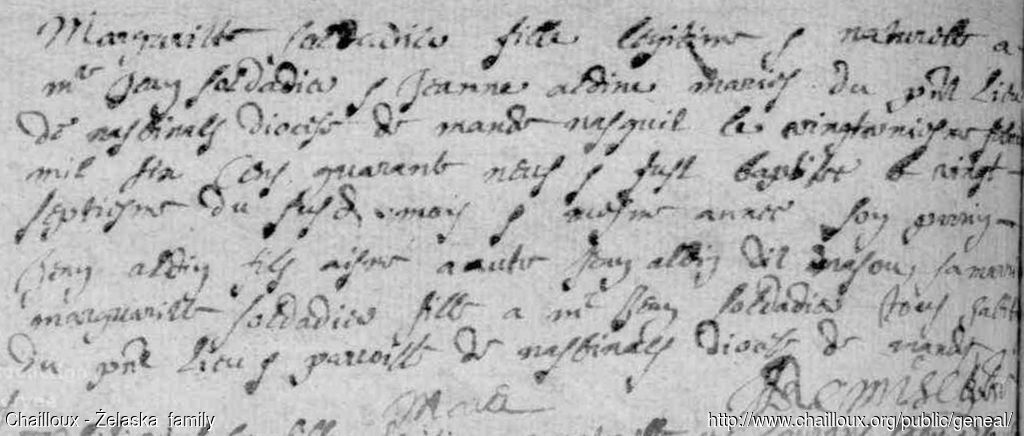 Marguritte soldadie fille legitime & naturelle a
mre Jean soldadie & Jeanne aldine mariés du pnt lieu
de nasbinals diocise de mande nasquit le vingtuniesme
mil six cens quarant neuf & fust baptisée le vingt
septiesme du susd mois & mesme annee son parrin
Jean aldin fils aisné a aute Jean aldin dit masou, sa marri
marguaritte soldadie fille a mr Jean soldadie tous
du pnt lieu & parroisse de nasbinals diocise de mande
Chailloux - Żelaska family
http://www.chailloux.org/public/geneal/